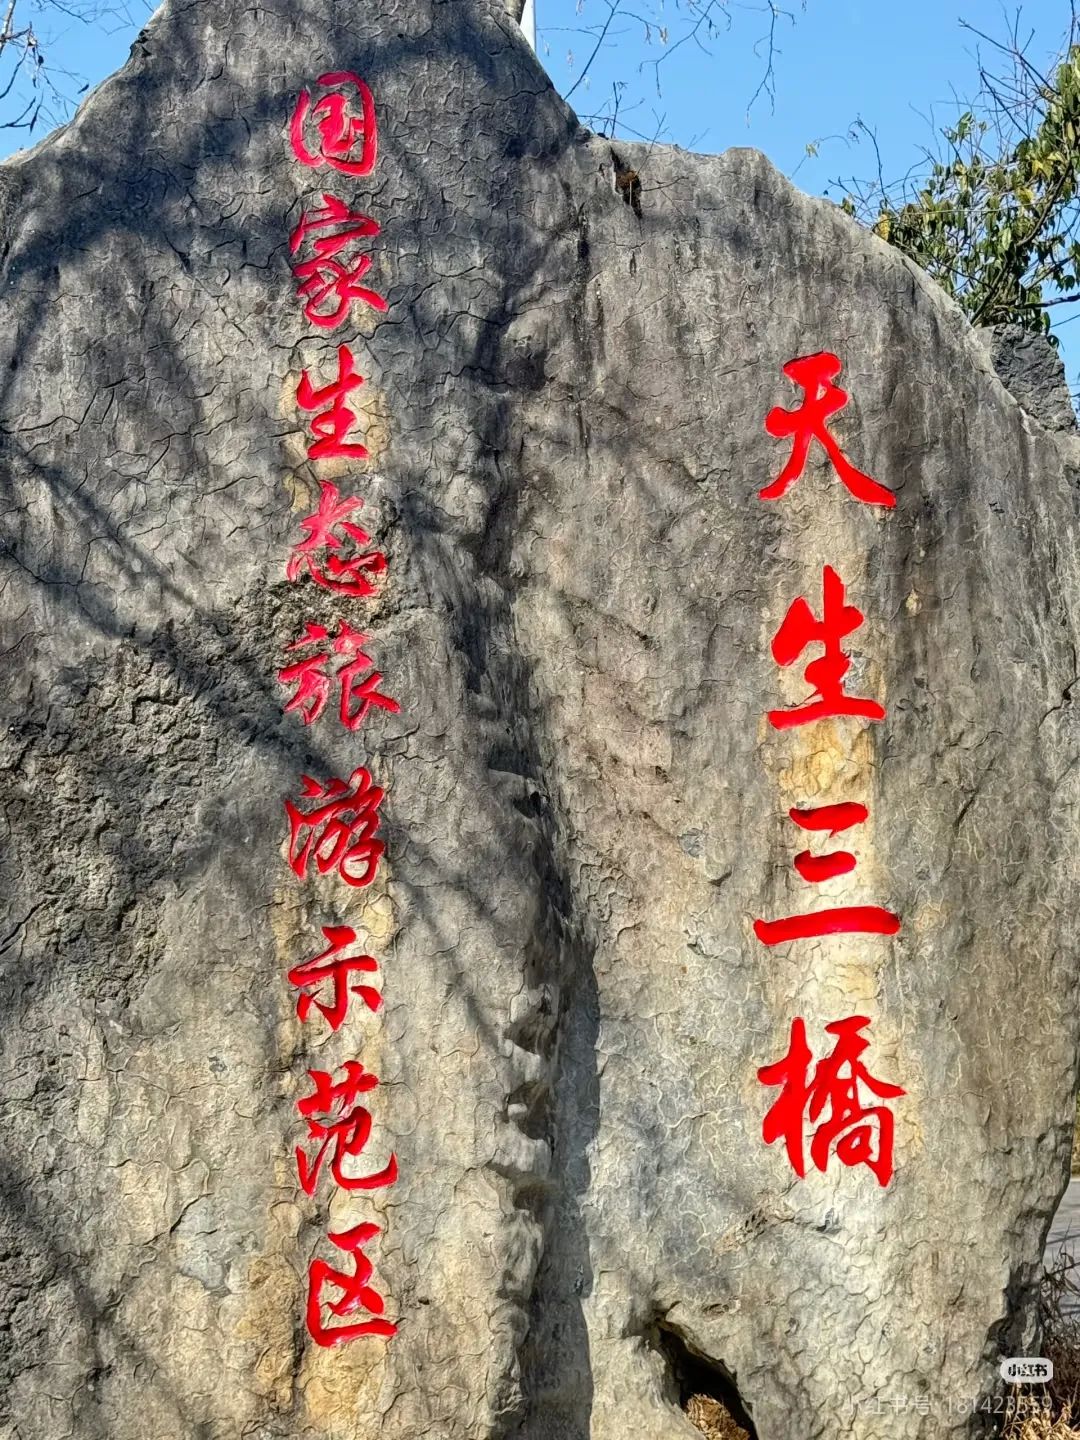 天生三橋
国家生态旅游示范区
小红书
小红书号: 181423559